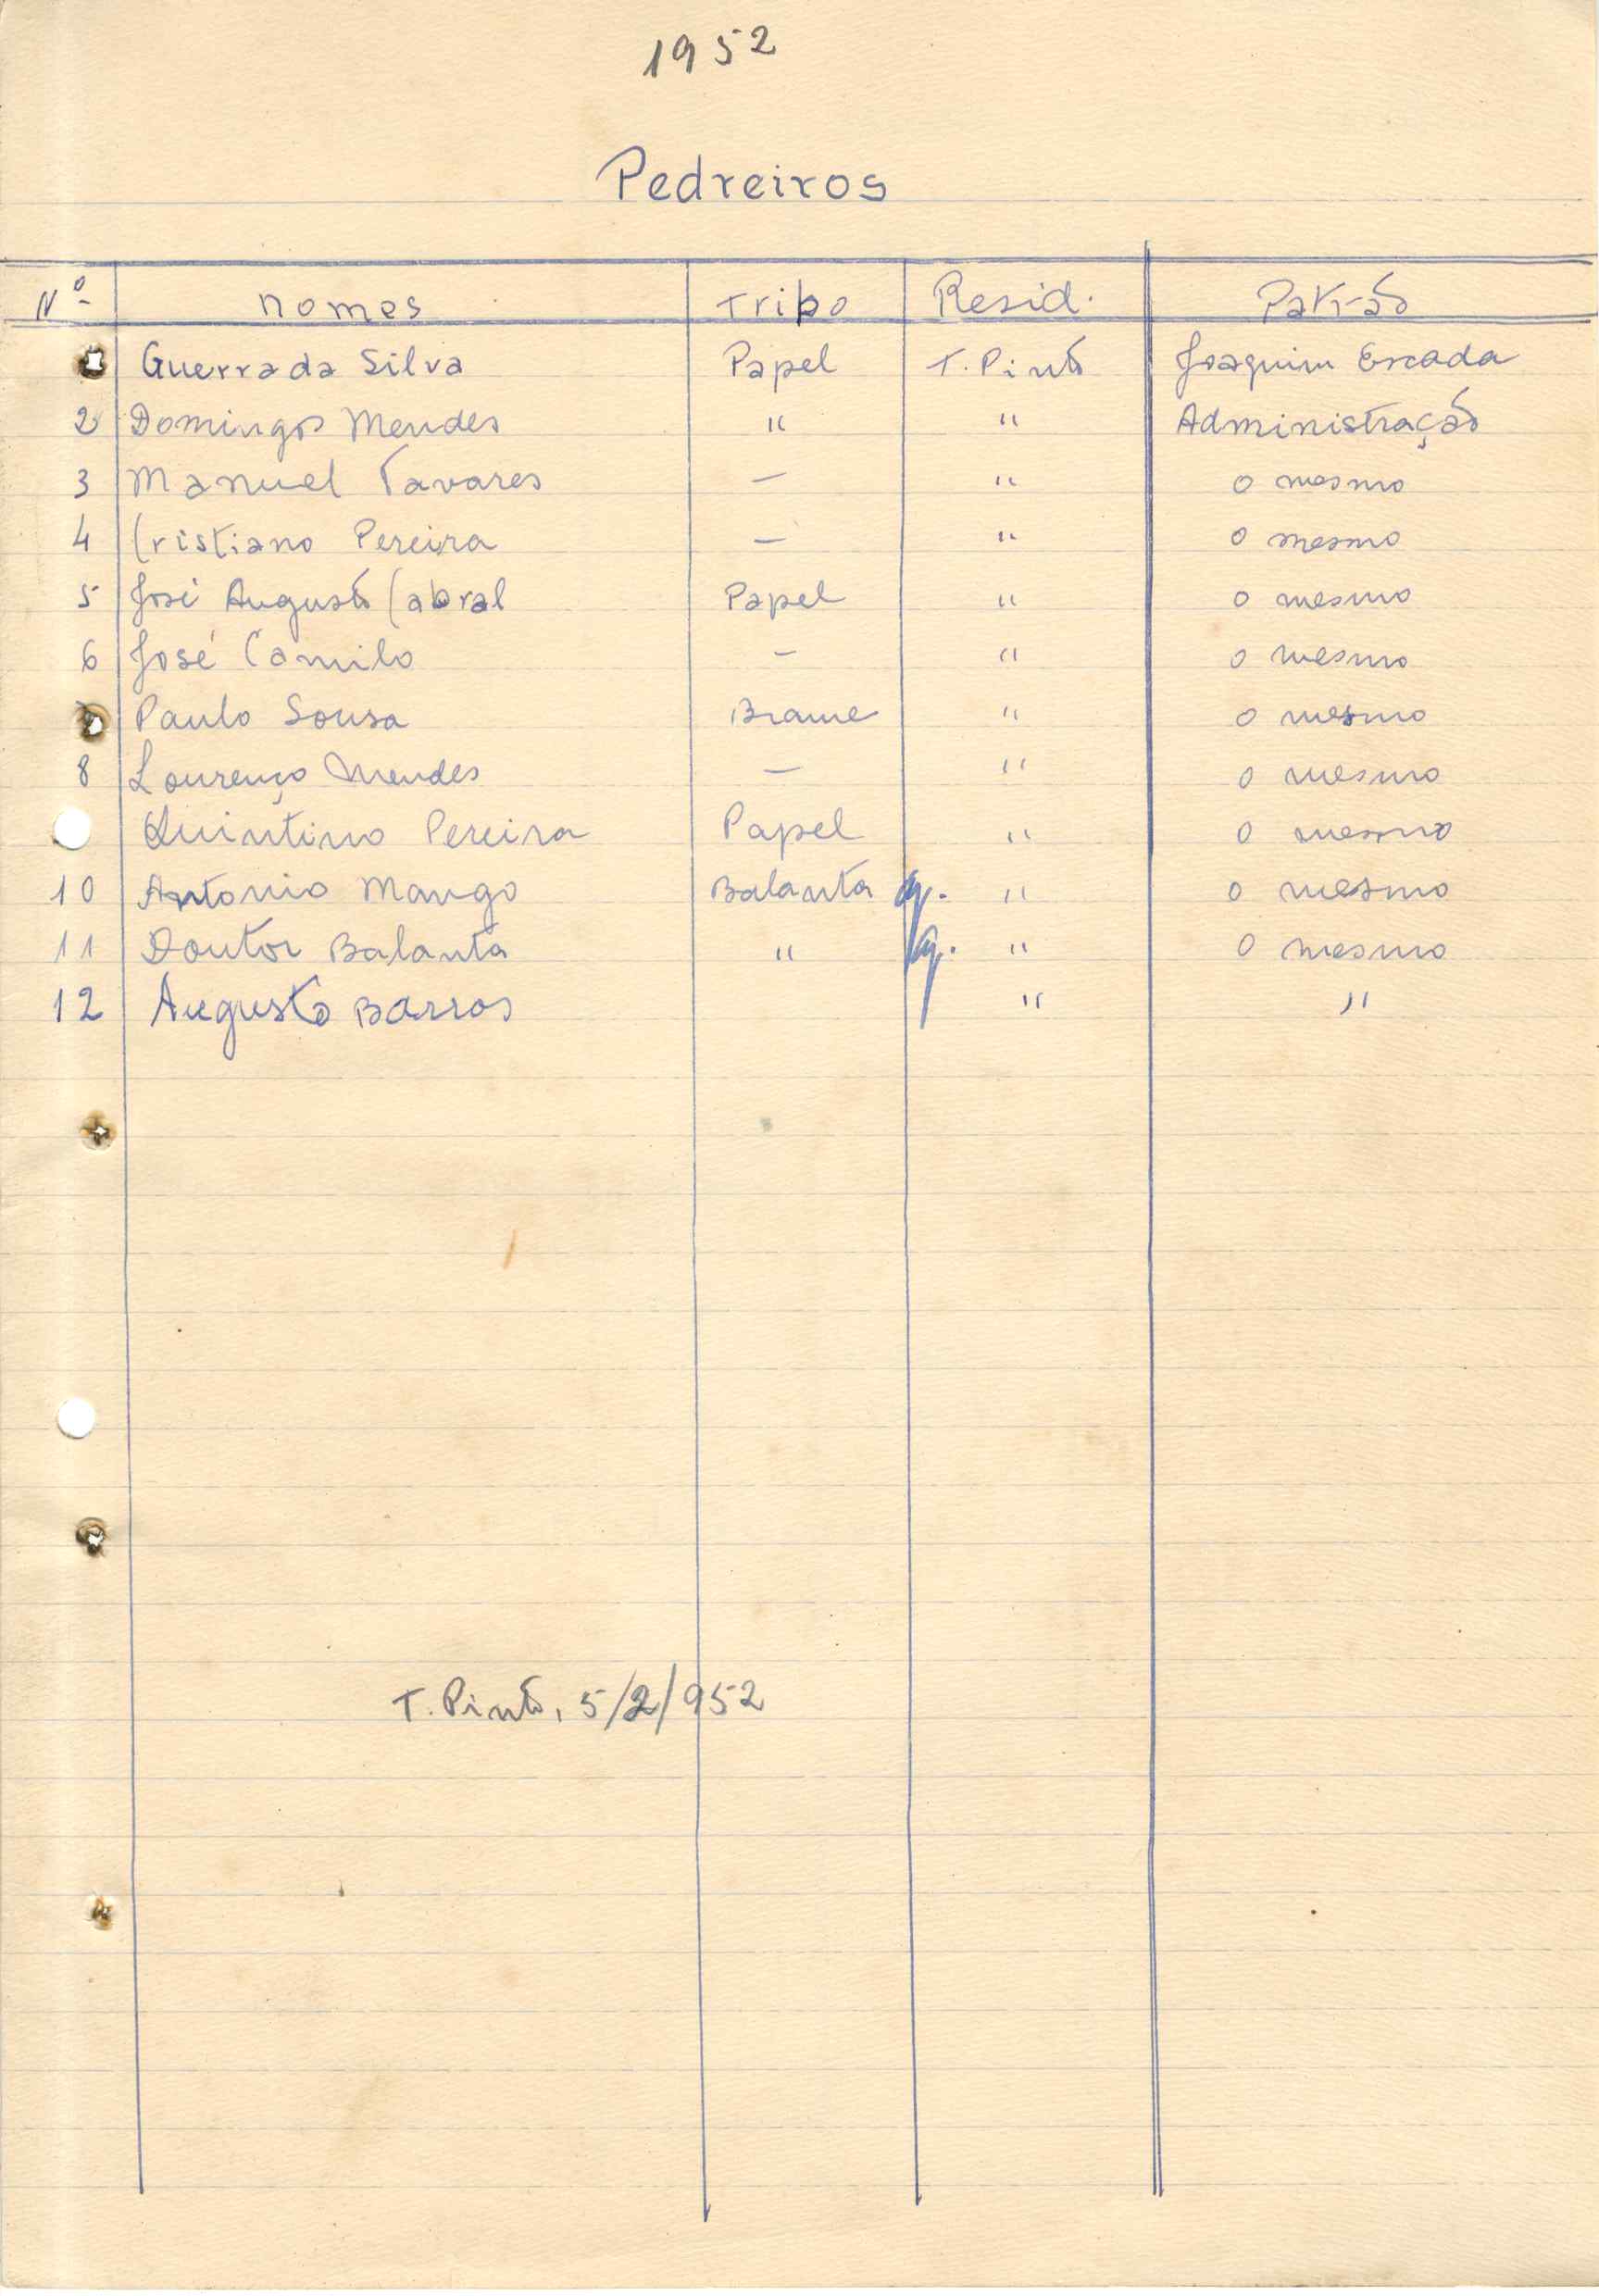 1952
Pedreiros
Nº nomes Tribo Resid. Patrão
Guerra da Silva Papel T. Pinto Joaquim Escada
2 Domingos Mendes " " Administração
3 Manuel Tavares — " o mesmo
4 Cristiano Pereira — " o mesmo
5 José Augusto Cabral Papel " o mesmo
6 José Camilo – " o mesmo
Paulo Sousa Brame " o mesmo
8 Lourenço Mendes — " o mesmo
Quintino Pereira Papel " o mesmo
10 Antonio Mango Balanta " o mesmo
11 Doutor Balanta " " o mesmo
12 Augusto Barros " "
T. Pinto, 5/2/952